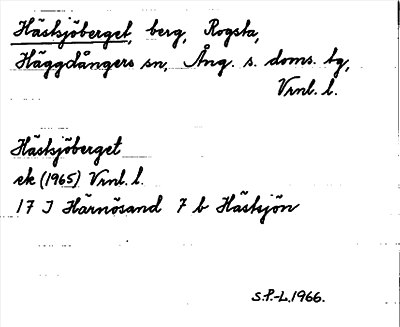 Hästsjöberget, berg, Rogsta,
Häggdångers sn, Ång. s. doms. tg,
Vrnl. l.
Hästsjöberget
ek (1965) Vrnl. l.
17 J Härnösand 7 b Hästsjön
S.P.-L. 1966.